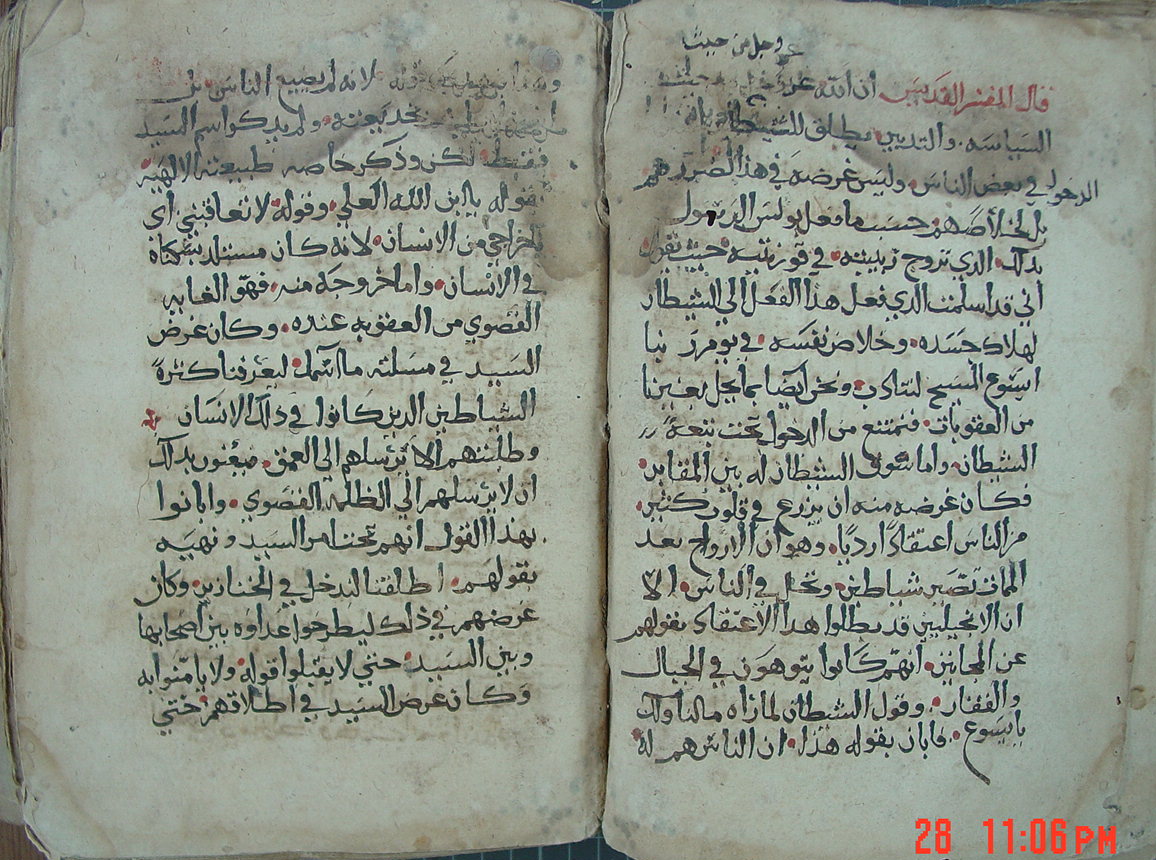 عز وجل من حيث
قال المفسر القديس ان الله عز وجل
السياسه. والتدبير يطلق للشيطان بان
الدخول في بعض الناس. وليس غرضه في هذا الضرر لهم
بل لخلاصهم حسب ما فعل بولس الرسول
بدلك الدي تزوج بزينته. في قورنتيه حيث يقول
اني قد اسلمت الدي فعل هدا الفعل الي الشيطان
لهلاك جسده. وخلاص نفسه في يوم ربنا
ايسوع المسيح لنتادب ونحن ايضا بما يحل بغيرنا
من العقوبات. فنمتنع من الدخول تحت
الشيطان. واما سوق الشيطان له بين المقابر.
فكان غرضه منه ان يزرع في قلوب كثير.
من الناس اعتقادا رديا. وهو ان الارواح بعد
تصير شياطين وتحل في الناس. الا
ان الانجيليين قد بطلوا هدا الاعتقاد بقولهم
عن المجانين. انهم كانوا يتوهون في الجبال
والقفار. وقول الشيطان لما راه مالنا ولك
يايسوع. فابان بقوله هدا. ان الناس هم له
لانه لم يصيب الناس. بل
تحد يعته. ولم يدكر اسم السيد
فقط. لكن ودكر خاصه طبيعته الالهيه.
بقوله يا ابن الله العلي. وقوله لا تعاقبني اي
باخراجي من الانسان. لانه كان مستلد بسكناه
في الانسان. واما خروجه منه. فهو الغايه
القصوي من العقوبه عنده. وكان غرض
السيد في مسلته ما اسمك. ليعرفنا كثرة
الشياطين الدين كانوا في دلك الانسان
وطلبتهم الا يرسلهم الي العمق. فيعنون بدلك
ان لا يرسلهم الي الظلمه القصوي. وابانوا
بهدا القول انهم تحت امر السيد ونهيه
بقولهم. اطلقنا لندخل في الخنازير. وكان
غرضهم في دلك ليطرحوا عداوه بين اصحابها
وبين السيد. حتي لا يقبلوا قوله. ولا يامنوا به
وكان غرض السيد في اطلاقهم. حتي